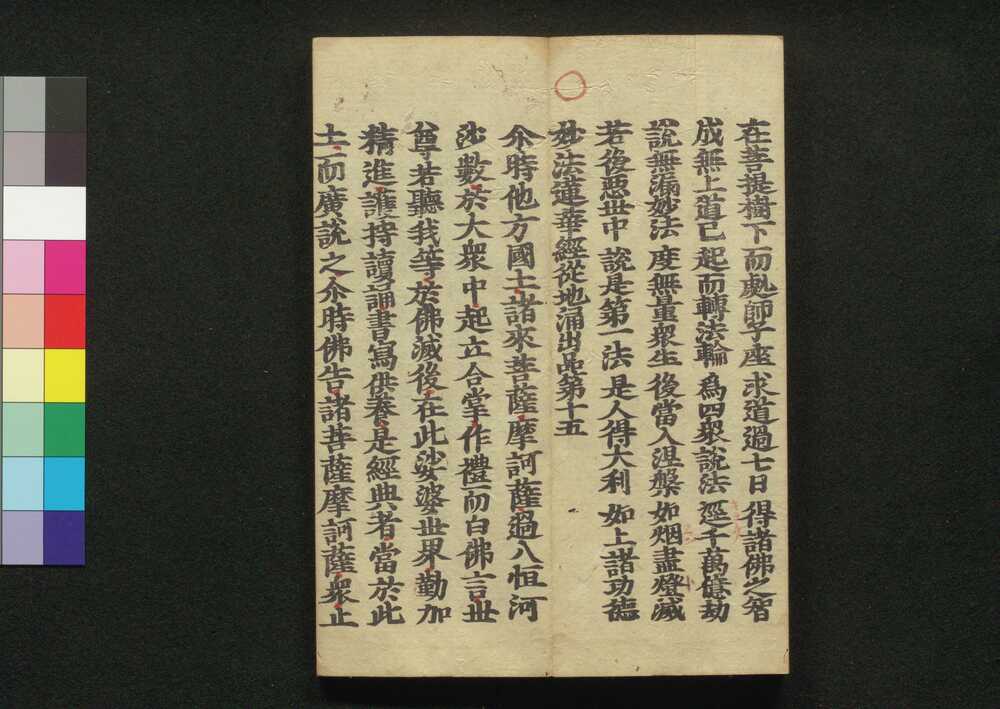 在菩提樹下而處師子座 求道過七日 得諸佛之智
成無上道已 起而轉法輪 為四眾說法 逕千萬億劫
說無漏妙法 度無量眾生 後當入涅槃 如烟盡燈滅
若後惡世中 說是第一法 是人得大利 如上諸功德
妙法蓮華經從地涌出品第十五
尒時他方國土諸來菩薩摩訶薩過八恒河
沙數於大眾中起立合掌作禮而白佛言世
尊若聽我等於佛滅後在此娑婆世界勤加
精進護持讀誦書寫供養是經典者當於此
土而廣說之尒時佛告諸菩薩摩訶薩眾止